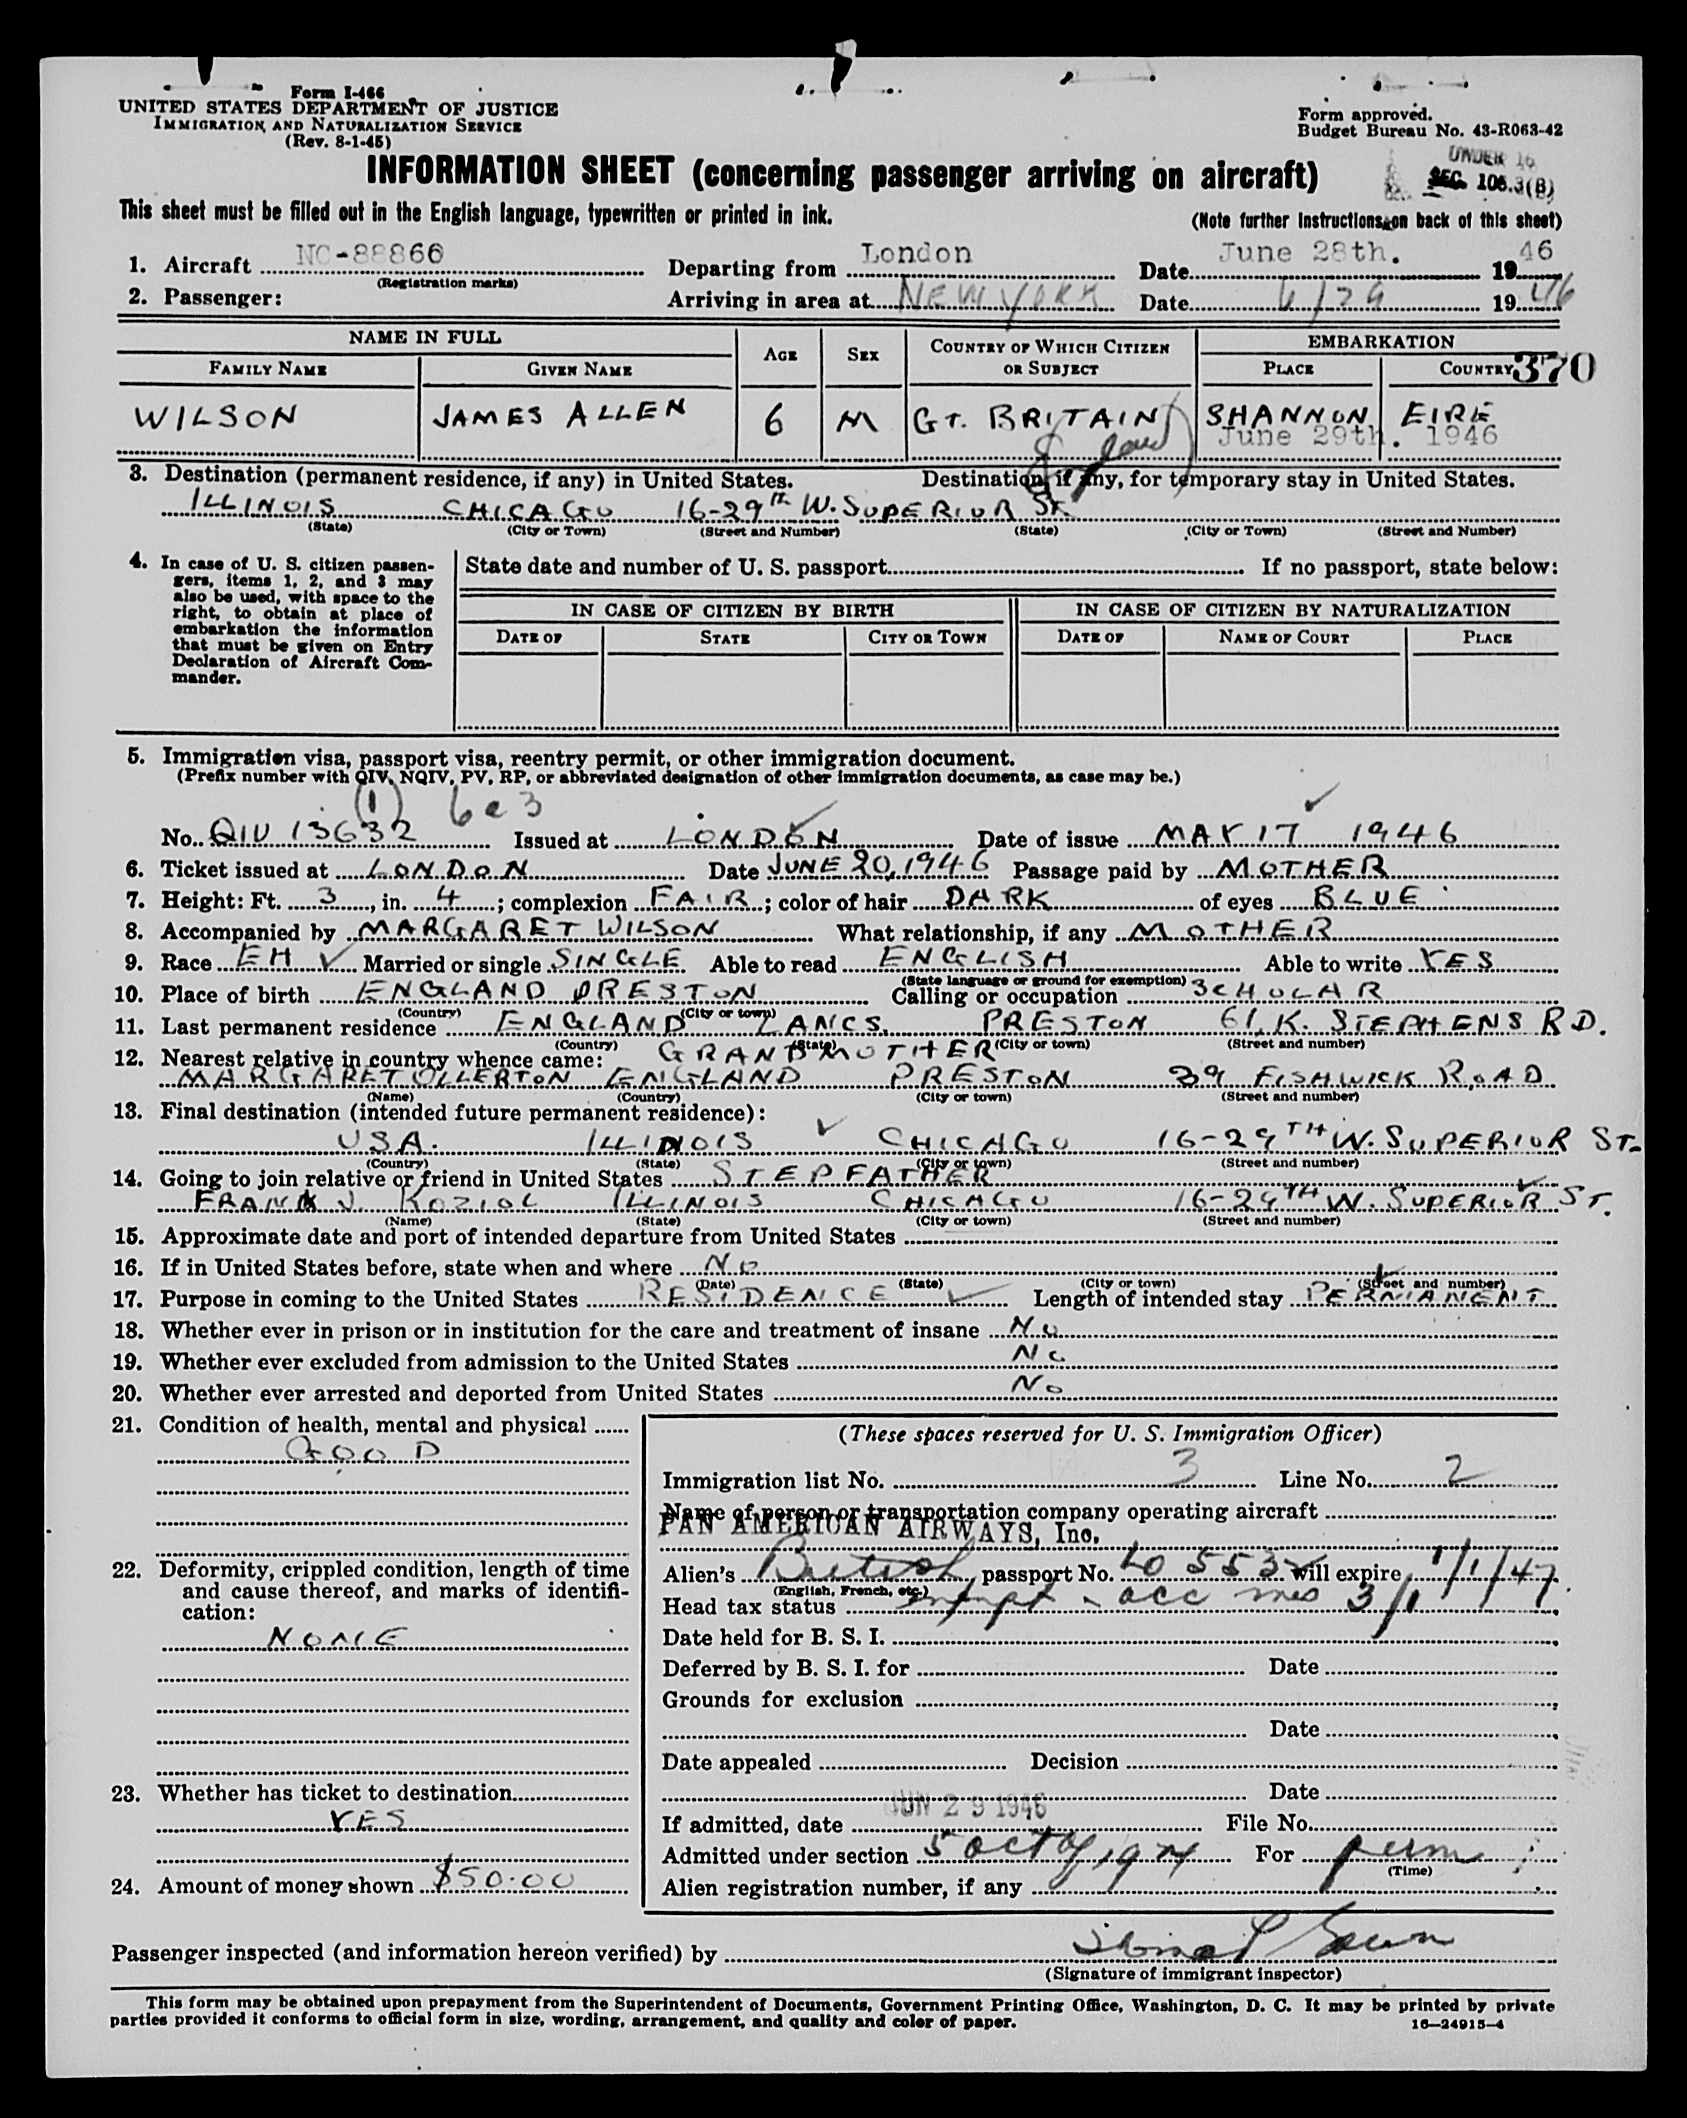 Form I-466
UNITED STATES DEPARTMENT OF JUSTICE
IMMIGRATION AND NATURALIZATION SERVICE
(Rev. 8-1-45)
Form approved.
Budget Bureau No. 43-R063-42
INFORMATION SHEET (concerning passenger arriving on aircraft)
UNDER 16
SEC. 108.3(B)
This sheet must be filled out in the English language, typewritten or printed in ink.
(Note further instructions on back of this sheet)
1. Aircraft NC-88866 Departing from London Date June 28th. 1946
(Registration marks)
2. Passenger: Arriving in area at NEW YORK Date 6/29 1946
NAME IN FULL AGE SEX COUNTRY OF WHICH CITIZEN OR SUBJECT EMBARKATION
FAMILY NAME GIVEN NAME PLACE COUNTRY 370
WILSON JAMES ALLEN 6 M GT. BRITAIN SHANNON EIRE
June 29th. 1946
3. Destination (permanent residence, if any) in United States. Destination, if any, for temporary stay in United States.
ILLINOIS CHICAGO 16-29TH W. SUPERIOR ST.
(State) (City or Town) (Street and Number) (State) (City or Town) (Street and Number)
4. In case of U. S. citizen passengers, items 1, 2, and 3 may also be used, with space to the right, to obtain at place of embarkation the information that must be given on Entry Declaration of Aircraft Commander.
State date and number of U. S. passport If no passport, state below:
IN CASE OF CITIZEN BY BIRTH IN CASE OF CITIZEN BY NATURALIZATION
DATE OF STATE CITY OR TOWN DATE OF NAME OF COURT PLACE
5. Immigration visa, passport visa, reentry permit, or other immigration document.
(Prefix number with QIV, NQIV, PV, RP, or abbreviated designation of other immigration documents, as case may be.)
(1) 6 e 3
No. QIV 13632 Issued at LONDON Date of issue MAY 17 1946
6. Ticket issued at LONDON Date JUNE 20, 1946 Passage paid by MOTHER
7. Height: Ft. 3, in. 4; complexion FAIR; color of hair DARK of eyes BLUE
8. Accompanied by MARGARET WILSON What relationship, if any MOTHER
9. Race EH Married or single SINGLE Able to read ENGLISH Able to write YES
(State language or ground for exemption)
10. Place of birth ENGLAND PRESTON Calling or occupation SCHOLAR
(Country) (City or town)
11. Last permanent residence ENGLAND LANCS. PRESTON 61, K. STEPHENS RD.
(Country) (State) (City or town) (Street and number)
12. Nearest relative in country whence came: GRANDMOTHER
MARGARET OLLERTON ENGLAND PRESTON 39 FISHWICK ROAD
(Name) (Country) (City or town) (Street and number)
13. Final destination (intended future permanent residence):
USA. ILLINOIS CHICAGO 16-29TH W. SUPERIOR ST.
(Country) (State) (City or town) (Street and number)
14. Going to join relative or friend in United States STEPFATHER
FRANK J. KOZIOL ILLINOIS CHICAGO 16-29TH W. SUPERIOR ST.
(Name) (State) (City or town) (Street and number)
15. Approximate date and port of intended departure from United States
16. If in United States before, state when and where NO
(Date) (State) (City or town) (Street and number)
17. Purpose in coming to the United States RESIDENCE Length of intended stay PERMANENT
18. Whether ever in prison or in institution for the care and treatment of insane NO
19. Whether ever excluded from admission to the United States NO
20. Whether ever arrested and deported from United States NO
21. Condition of health, mental and physical
GOOD
22. Deformity, crippled condition, length of time and cause thereof, and marks of identification:
NONE
23. Whether has ticket to destination
YES
24. Amount of money shown $50.00
(These spaces reserved for U. S. Immigration Officer)
Immigration list No. 3 Line No. 2
Name of person or transportation company operating aircraft
PAN AMERICAN AIRWAYS, Inc.
Alien's British passport No. LO 5532 will expire 1/1/47
(English, French, etc.)
Head tax status exempt - acc mes 3/1
Date held for B. S. I.
Deferred by B. S. I. for Date
Grounds for exclusion
Date
Date appealed Decision
Date
JUN 29 1946
If admitted, date File No.
Admitted under section 5 act of 1924 For perm
(Time)
Alien registration number, if any
Passenger inspected (and information hereon verified) by
(Signature of immigrant inspector)
This form may be obtained upon prepayment from the Superintendent of Documents, Government Printing Office, Washington, D. C. It may be printed by private
parties provided it conforms to official form in size, wording, arrangement, and quality and color of paper.
16—24915-4